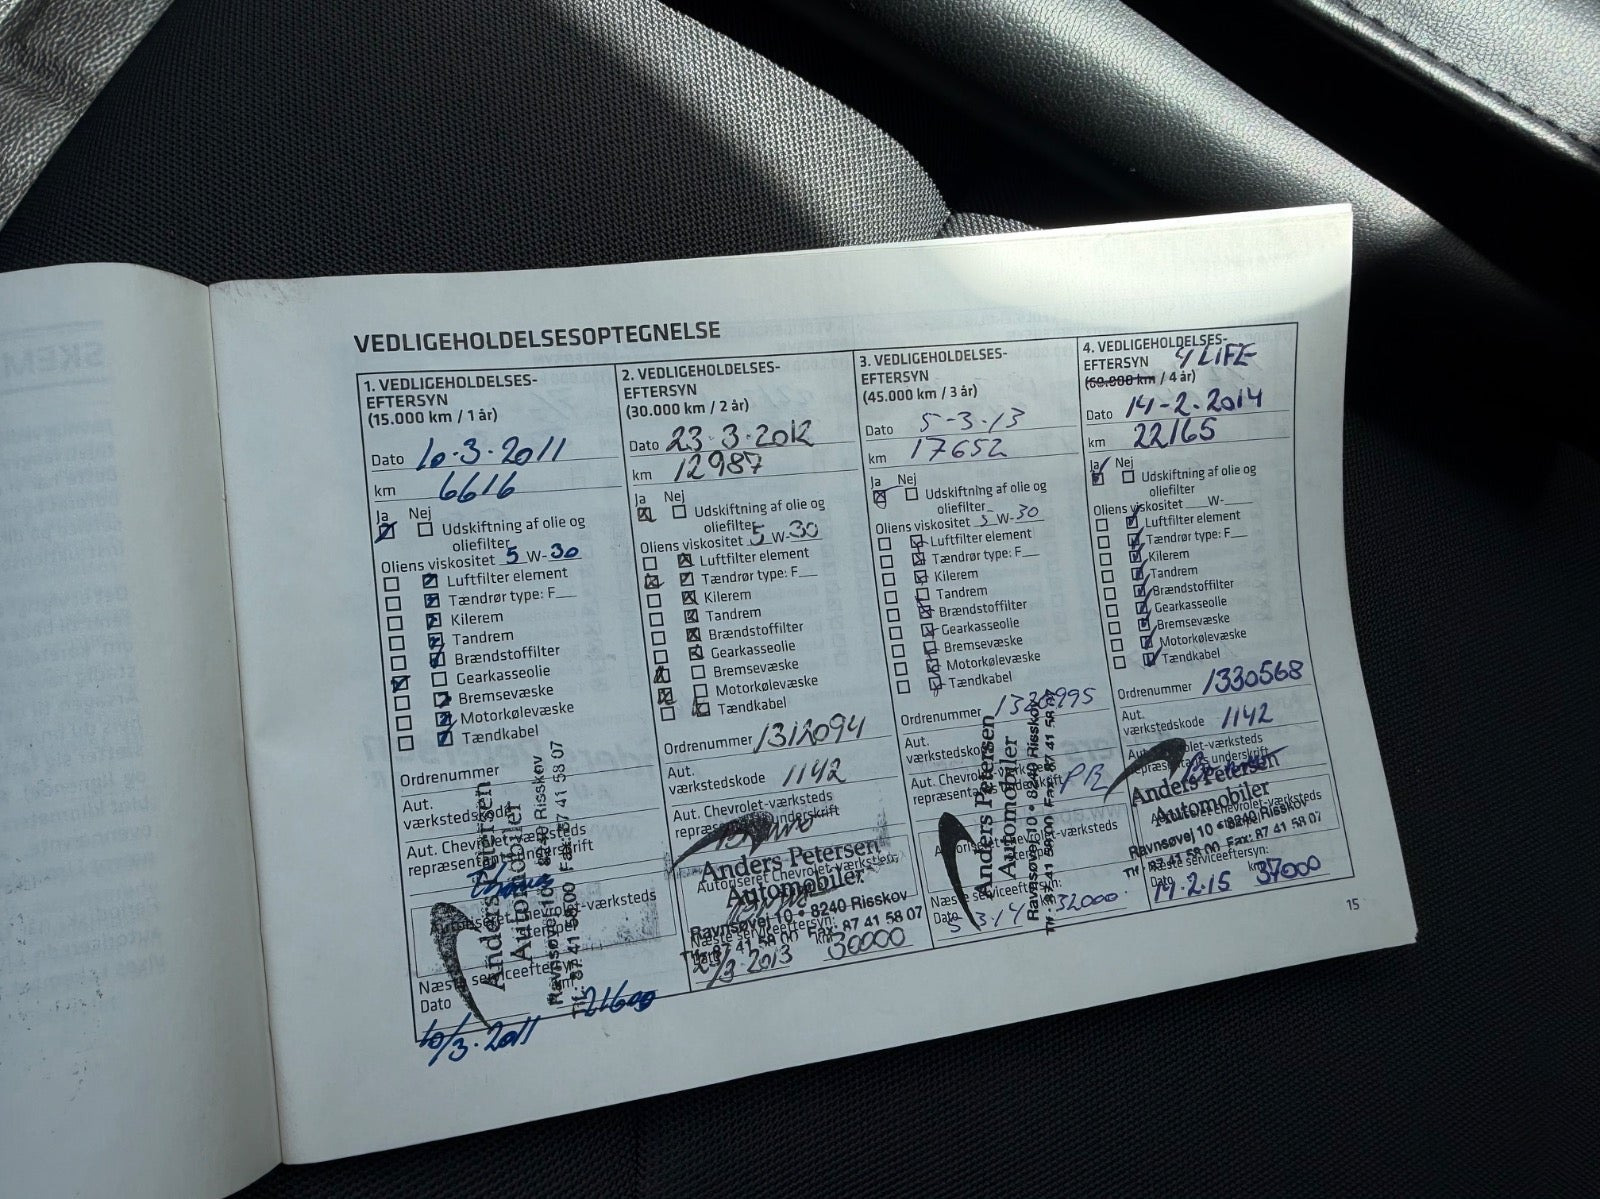 VEDLIGEHOLDELSESOPTEGNELSE
1. VEDLIGEHOLDELSES-
EFTERSYN
(15.000 km / 1 år)
Dato 10.3.2011
km 6616
Ja Nej
Udskiftning af olie og
oliefilter
Oliens viskositet 5 W-30
Luftfilter element
Tændrør type: F__
Kilerem
Tandrem
Brændstoffilter
Gearkasseolie
Bremsevæske
Motorkølevæske
Tændkabel
Ordrenummer
Aut.
værkstedskode
Aut. Chevrolet-værksteds
repræsentants underskrift
Autoriseret Chevrolet-værksteds
stempel
Anders Petersen
Automobiler
Ravnsøvej 10 • 8240 Risskov
Tlf.: 87 41 58 00 Fax: 87 41 58 07
Næste serviceeftersyn:
Dato km
10/3.2011 21600
2. VEDLIGEHOLDELSES-
EFTERSYN
(30.000 km / 2 år)
Dato 23.3.2012
km 12987
Ja Nej
Udskiftning af olie og
oliefilter
Oliens viskositet 5 W-30
Luftfilter element
Tændrør type: F__
Kilerem
Tandrem
Brændstoffilter
Gearkasseolie
Bremsevæske
Motorkølevæske
Tændkabel
Ordrenummer 1312094
Aut.
værkstedskode 1142
Aut. Chevrolet-værksteds
repræsentants underskrift
Anders Petersen
Autoriseret Chevrolet-værksteds
Automobiler
Ravnsøvej 10 • 8240 Risskov
Næste serviceeftersyn:
Tlf.: 87 41 58 00 Fax: 87 41 58 07
Dato 23/3.2013 km 30000
3. VEDLIGEHOLDELSES-
EFTERSYN
(45.000 km / 3 år)
Dato 5-3.13
km 17652
Ja Nej
Udskiftning af olie og
oliefilter
Oliens viskositet 5 W-30
Luftfilter element
Tændrør type: F__
Kilerem
Tandrem
Brændstoffilter
Gearkasseolie
Bremsevæske
Motorkølevæske
Tændkabel
Ordrenummer
Aut.
værkstedskode
Aut. Chevrolet-værksteds
repræsentants underskrift PB
Anders Petersen
Automobiler
Ravnsøvej 10 • 8240 Risskov
Tlf.: 87 41 58 00 Fax: 87 41 58 07
Næste serviceeftersyn:
Dato 5.3.14 km 32000
4. VEDLIGEHOLDELSES-
EFTERSYN 4 LIFE
(60.000 km / 4 år)
Dato 14-2.2014
km 22165
Ja Nej
Udskiftning af olie og
oliefilter
Oliens viskositet __W-__
Luftfilter element
Tændrør type: F__
Kilerem
Tandrem
Brændstoffilter
Gearkasseolie
Bremsevæske
Motorkølevæske
Tændkabel
Ordrenummer 1330568
Aut.
værkstedskode 1142
Aut. Chevrolet-værksteds
repræsentants underskrift
Anders Petersen
Automobiler
Autoriseret Chevrolet-værksteds
stempel
Ravnsøvej 10 • 8240 Risskov
Tlf.: 87 41 58 00 Fax: 87 41 58 07
Næste serviceeftersyn:
Dato 14.2.15 km 37000
15